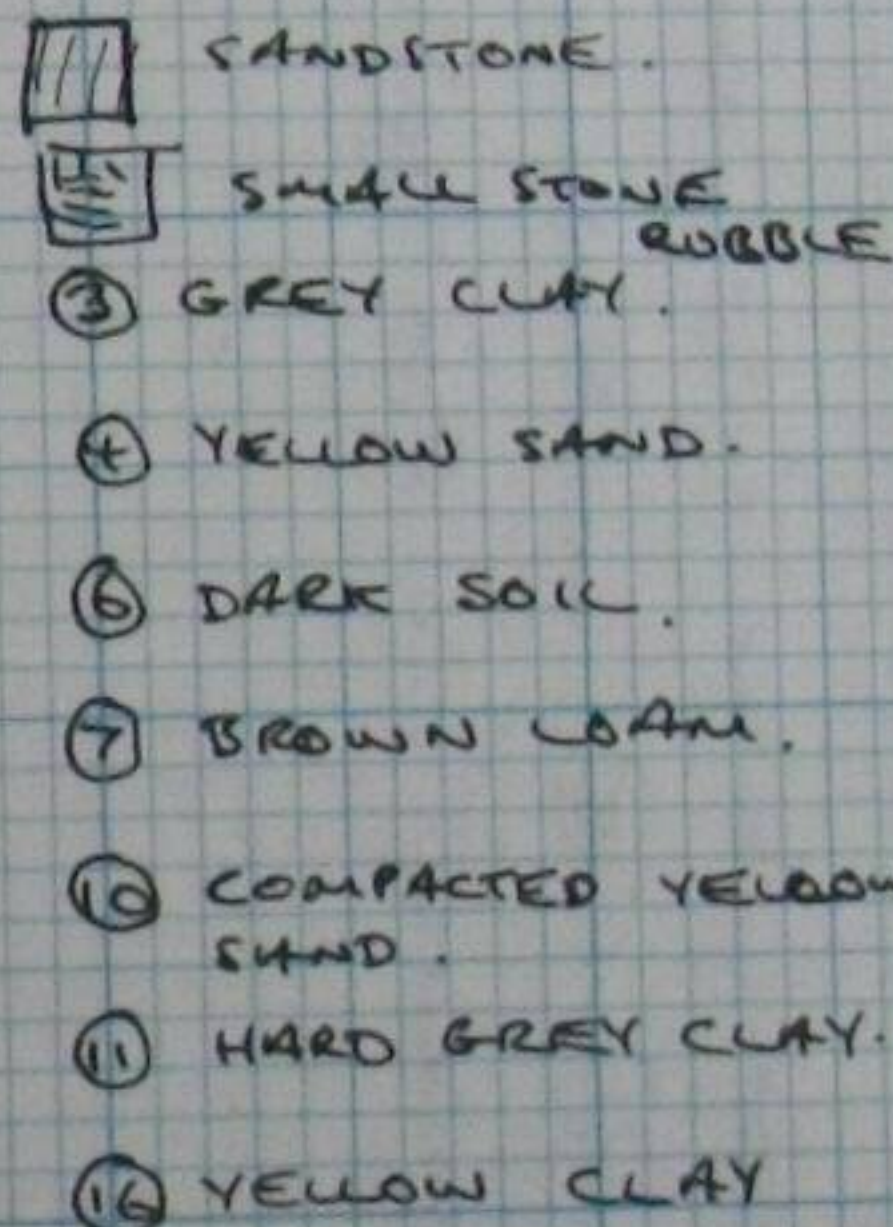 SANDSTONE.
SMALL STONE
RUBBLE
3 GREY CLAY.
4 YELLOW SAND.
6 DARK SOIL.
7 BROWN LOAM.
10 COMPACTED YELLOW
SAND.
11 HARD GREY CLAY.
16 YELLOW CLAY